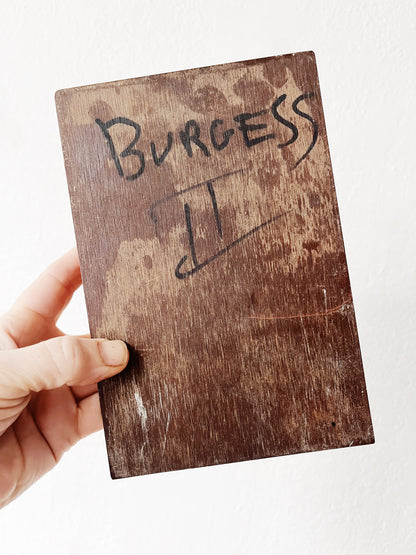 BURGESS
II